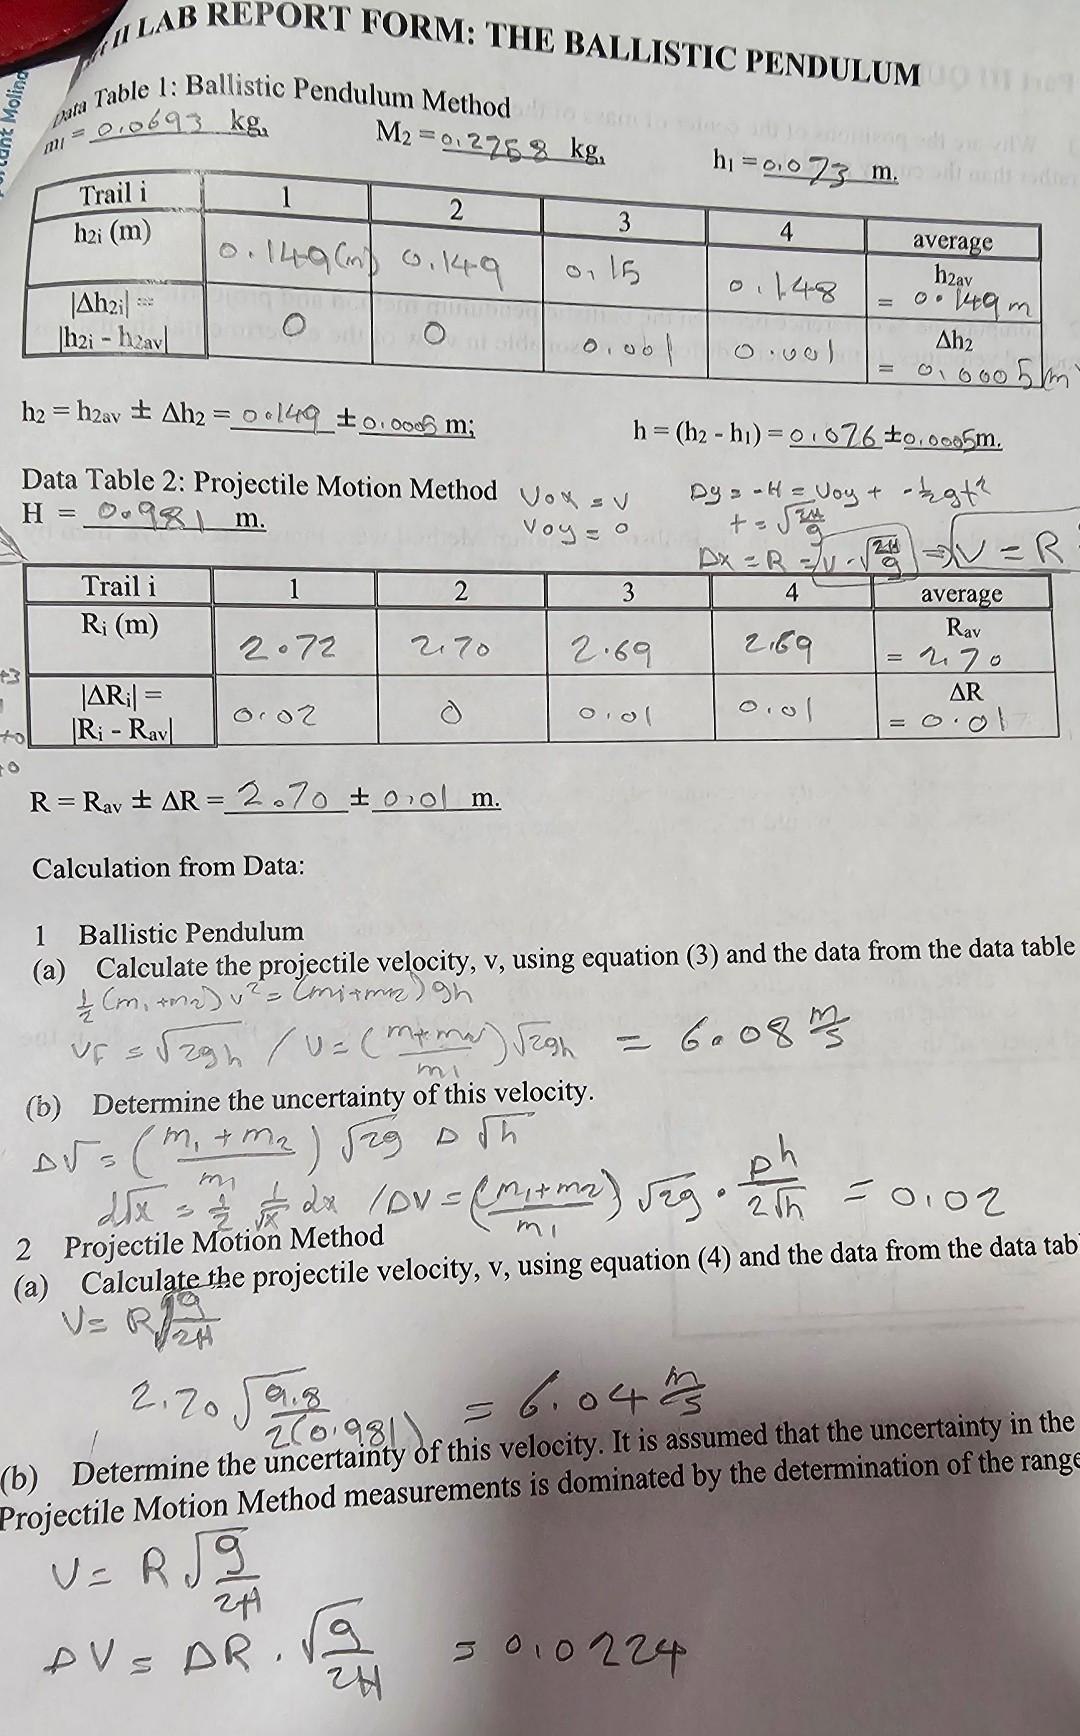 II LAB REPORT FORM: THE BALLISTIC PENDULUM
Data Table 1: Ballistic Pendulum Method
m1 = 0.0693 kg, M2 = 0.2758 kg, h1 = 0.073 m.
Trail i 1 2 3 4 average
h2i (m) 0.149(m) 0.149 0.15 0.148 h2av = 0.149m
|Δh2i| = |h2i - h2av| 0 0 0.001 0.001 Δh2 = 0.0005m
h2 = h2av ± Δh2 = 0.149 ± 0.0005 m; h = (h2 - h1) = 0.076 ±0.0005m.
Data Table 2: Projectile Motion Method Vox = V Dy = -H = Voy + -½gt²
H = 0.981 m. Voy = 0 t = √2H/g
Dx = R = V·√2H/g ⇒ V = R
Trail i 1 2 3 4 average
Ri (m) 2.72 2.70 2.69 2.69 Rav = 2.70
|ΔRi| = |Ri - Rav| 0.02 0 0.01 0.01 ΔR = 0.01
R = Rav ± ΔR = 2.70 ± 0.01 m.
Calculation from Data:
1 Ballistic Pendulum
(a) Calculate the projectile velocity, v, using equation (3) and the data from the data table
½(m1+m2)v² = (m1+m2)gh
VF = √2gh / V = (m+m2/m1)√2gh = 6.08 m/s
(b) Determine the uncertainty of this velocity.
ΔV = (m1+m2/m1) √2g Δ√h
d√x = ½ 1/√x dx / DV = (m1+m2/m1) √2g · Dh/2√h = 0.02
2 Projectile Motion Method
(a) Calculate the projectile velocity, v, using equation (4) and the data from the data tab
V = R√g/2H
2.70 √9.8/2(0.981) = 6.04 m/s
(b) Determine the uncertainty of this velocity. It is assumed that the uncertainty in the
Projectile Motion Method measurements is dominated by the determination of the range
V = R√g/2H
ΔV = ΔR · √g/2H = 0.0224